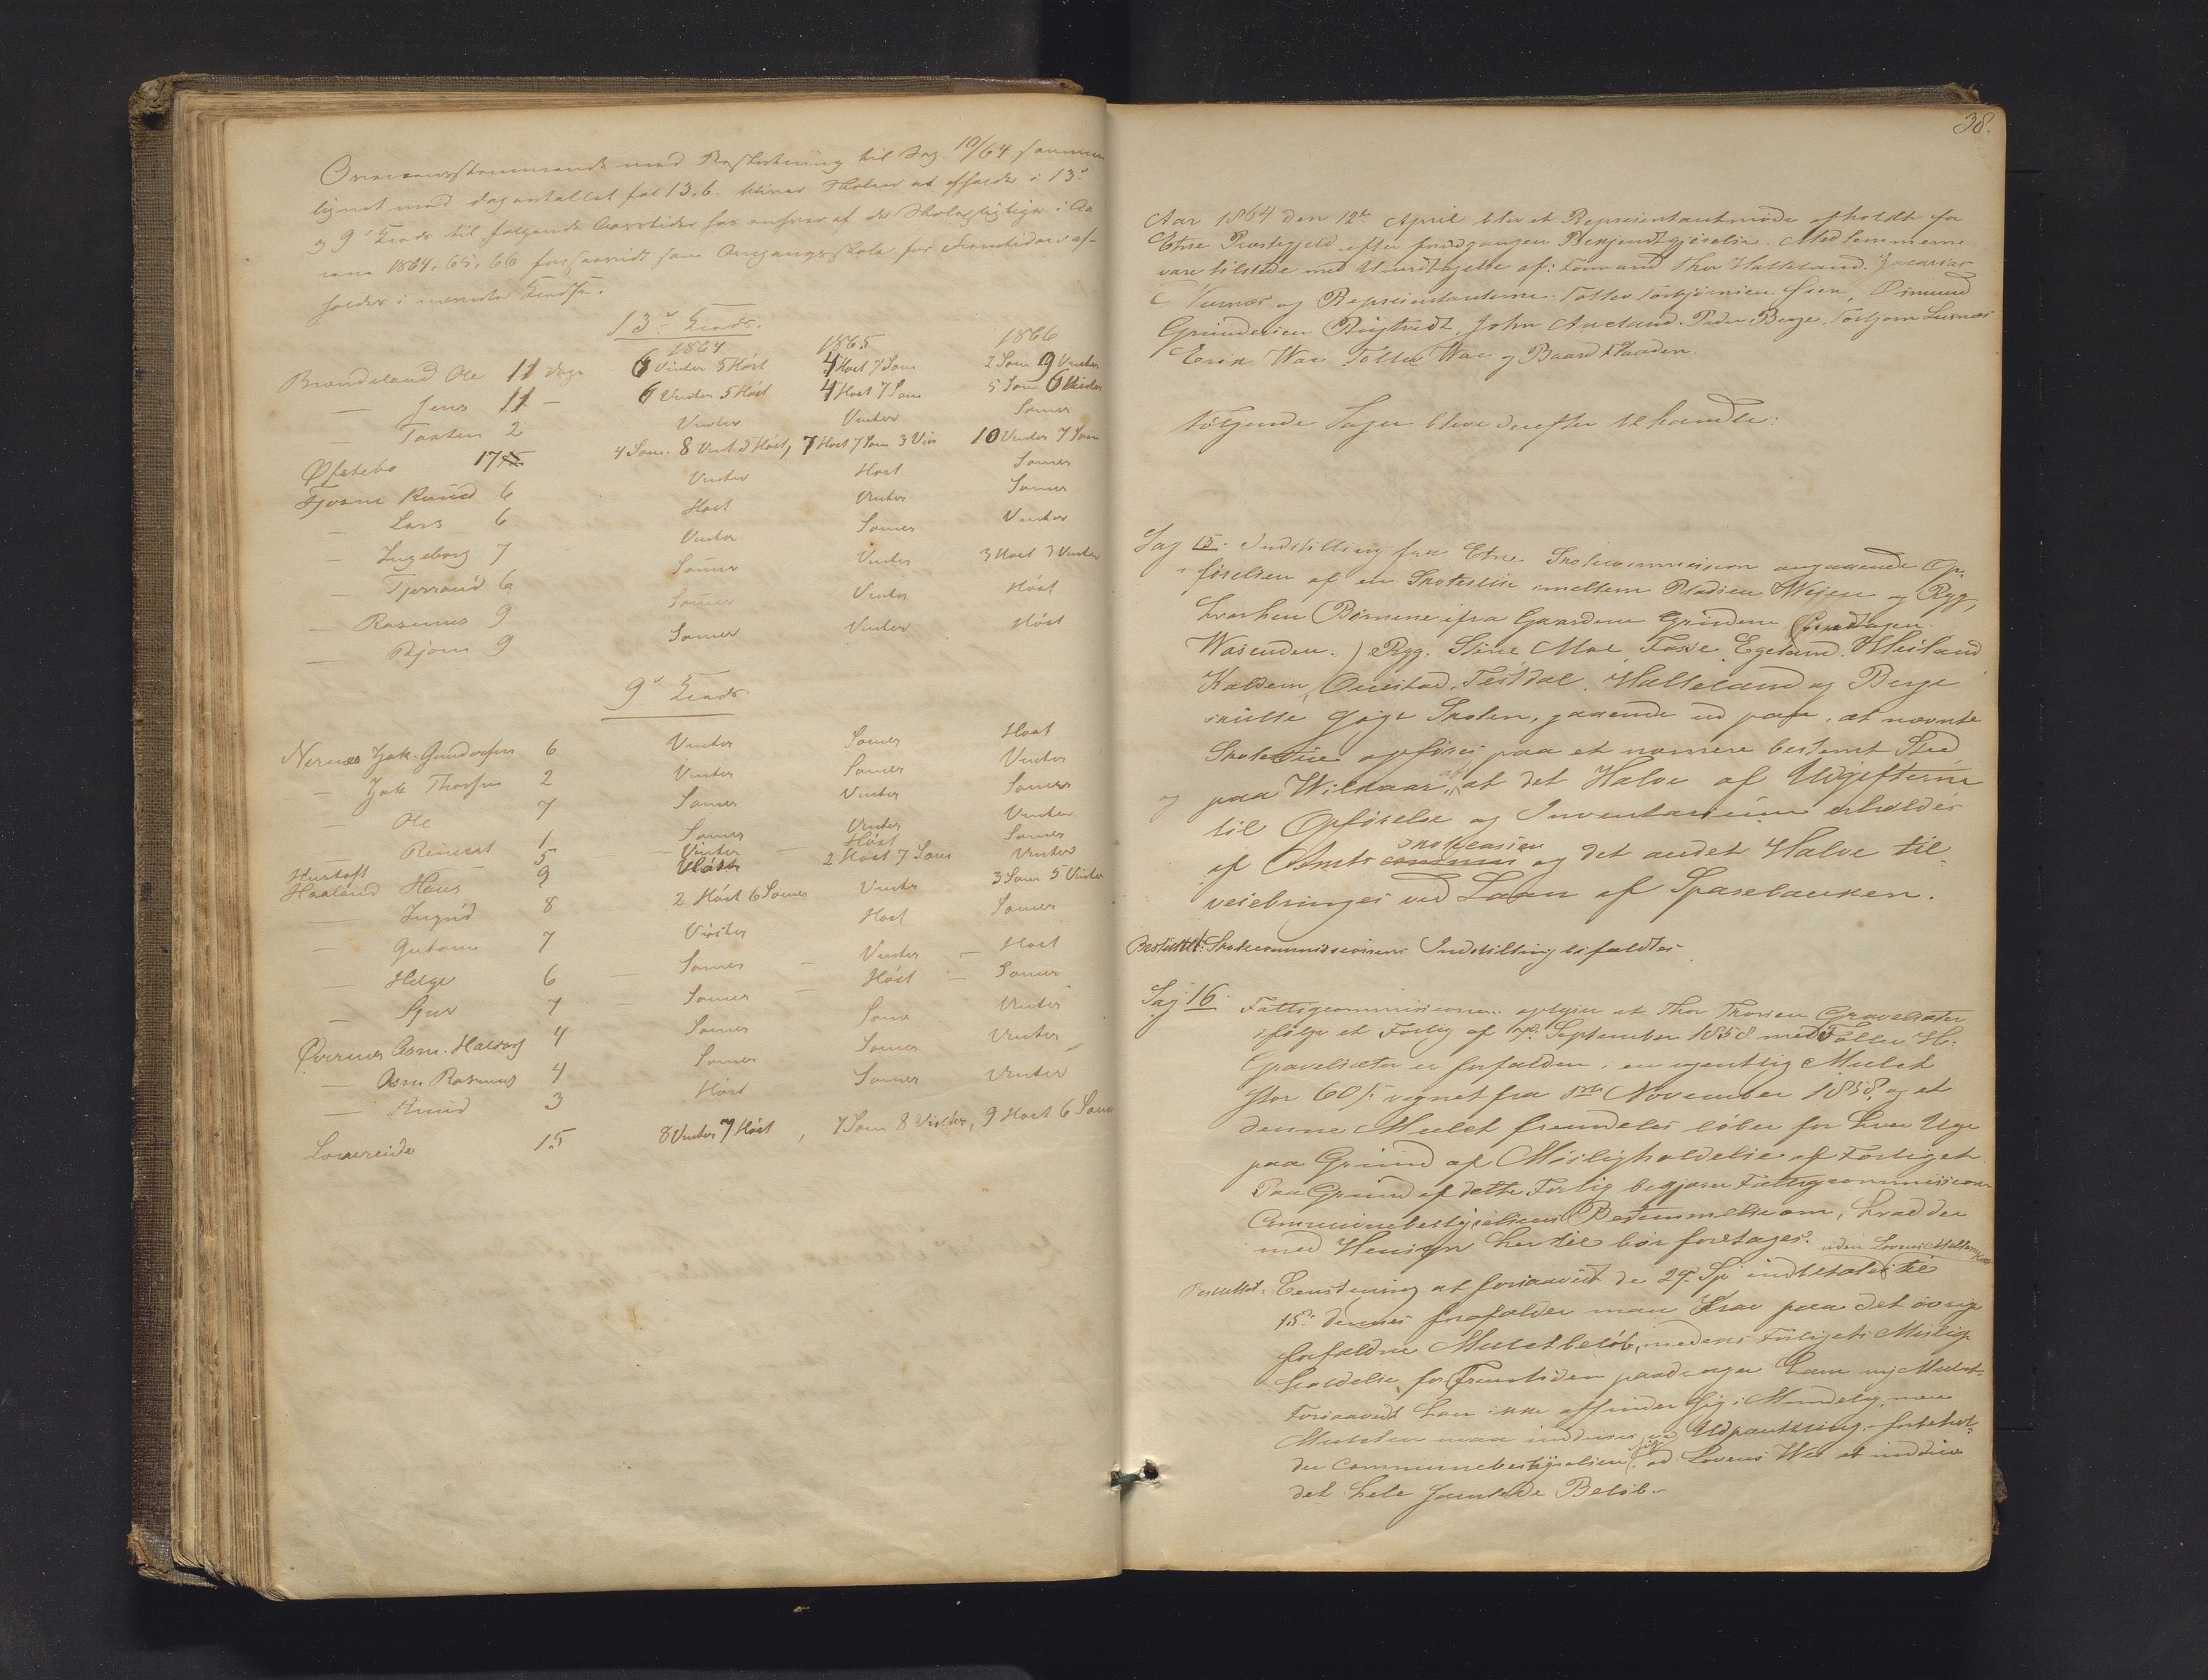 Overeensstemmende med Beslutning til Sag 10/64 sammen
lignet med dagantallet fol 13.b. bliver Skolen at afholde i 13de
og 9de Kreds til følgende Aarstider for enhver af de Skolepligtige i Aa
rene 1864, 65, 66 forsaavidt som Omgangsskole for Fremtiden af-
holdes i nævnte Kredse.
13de Kreds.
1864 1865 1866
Brendeland Ole 11 dage 6 Vinter 5 Høst 4 Høst 7 Som 2 Som 9 Vinter
— Jens 11 — 6 Vinter 5 Høst 4 Høst 7 Som 5 Som 6 Vinter
— Torsten 2 Vinter Vinter Somer
Øfstebø 17 4 Som. 8 Vint 5 Høst, 7 Høst 7 Som 3 Vin 10 Vinter 7 Som
Fjøsne Knud 6 Vinter Høst Somer
— Lars 6 Høst Vinter Somer
— Ingeborg 7 Vinter Somer Vinter
— 6 Somer Vinter 3 Høst 3 Vinter
— Rasmus 9 Somer Vinter Høst
— Bjørn 9 Somer Vinter Høst
9de Kreds
Nernes Jak. Gundersen 6 Vinter Somer Høst
— Jak Thorsen 2 Vinter Somer Vinter
— Ole 7 Somer Vinter Somer
— Reinert 1 Somer Vinter Vinter
Hustoft 5 — Vinter — Høst Somer
Haaland Hans 9 Høst 2 Høst 7 Som Vinter
— Ingrid 8 2 Høst 6 Somer Vinter 3 Som 5 Vinter
— Guttorm 7 Vinter Høst Somer
— Helge 6 — Somer — Vinter — Høst
— Sjur 7 — Somer — Høst — Somer
Øvernes Asm. Halvors 4 Somer Some Vinter
— Asm Rasmus 4 Somer Somer Vinter
— Knud 3 Høst Somer Vinter
Lovareide 15 8 Vinter 7 Høst, 7 Som 8 Vinter, 9 Høst 6 Som
38.
Aar 1864 den 12te April blev et Repræsentantmøde afholdt for
Etne Præstegjeld efter foregangen Bekjendtgjørelse. Medlemmerne
vare tilstede med Undtagelse af: Formand Thor Halleland. Zacarias
C Nernæs og Repræsentanterne: Tollev Torbjørnsen Øien, Osmund
Gundersen Rygtvedt, John Aucland. Peder Berge. Torbjørn Lusnæs
Erik Wae Tollev Wae og Baard Flaaden.
Følgende Sager bleve derefter behandlet:
Sag 15. Indstilling fra Etne Skolecommission angaaende Op-
førelsen af en Skolestue imellem Pladsen Weien og Ryg,
hvorhen Børnene ifra Gaardene Grinden
Wasenden.) Ryg, Stine Moe, Fosse, Egeland, Heiland
Kaldem, Onestad, Teitdal, Halleland og Berge
skulle søge Skolen, gaaende ud paa, at nævnte
Skolestue opføres paa et nærmere bestemt Sted
og paa Wilkaar, at det Halve af Udgifterne
til Opførelse og Inventarium erholdes
af Amts skolecassen og det andet Halve til-
veiebringes ved Laan af Sparebanken.
Besluttet: Skolecommissionens Indstilling bifaldtes
Sag 16. Fattigcommissionen oplyser at Thor Thorsen Gravelsæter
ifølge et Forlig af September 1858 med Tollev H.
Gravelsæter er forfalden i en ugentlig Mulct
stor 60 s regnet fra 1ste November 1858, og at
denne Mulct fremdeles løber for hver Uge
paa Grund af Misligholdelse af Forliget.
Paa Grund af dette Forlig begjærer Fattigcommissionen
Communebestyrelsens Bestemmelse om, hvad der
med Hensyn her til bør foretages.
Besluttet. Eenstemmig at forsaavidt de 29 Sp indbetales uden Lovens Mellemkomst til
15de dennes frafalder man Krav paa det øvrige
forfaldne Mulctbeløb, medens Forligets Mislig-
holdelse for Fremtiden paadrager ham ny Mulct.
Forsaavidt han ikke affinder sig i Mindelig, men
Mulcten maa inddrives ved Udpantning, forbehol-
der Communebestyrelsen sig ad Lovens Wei at inddrive
det hele samlede Beløb.